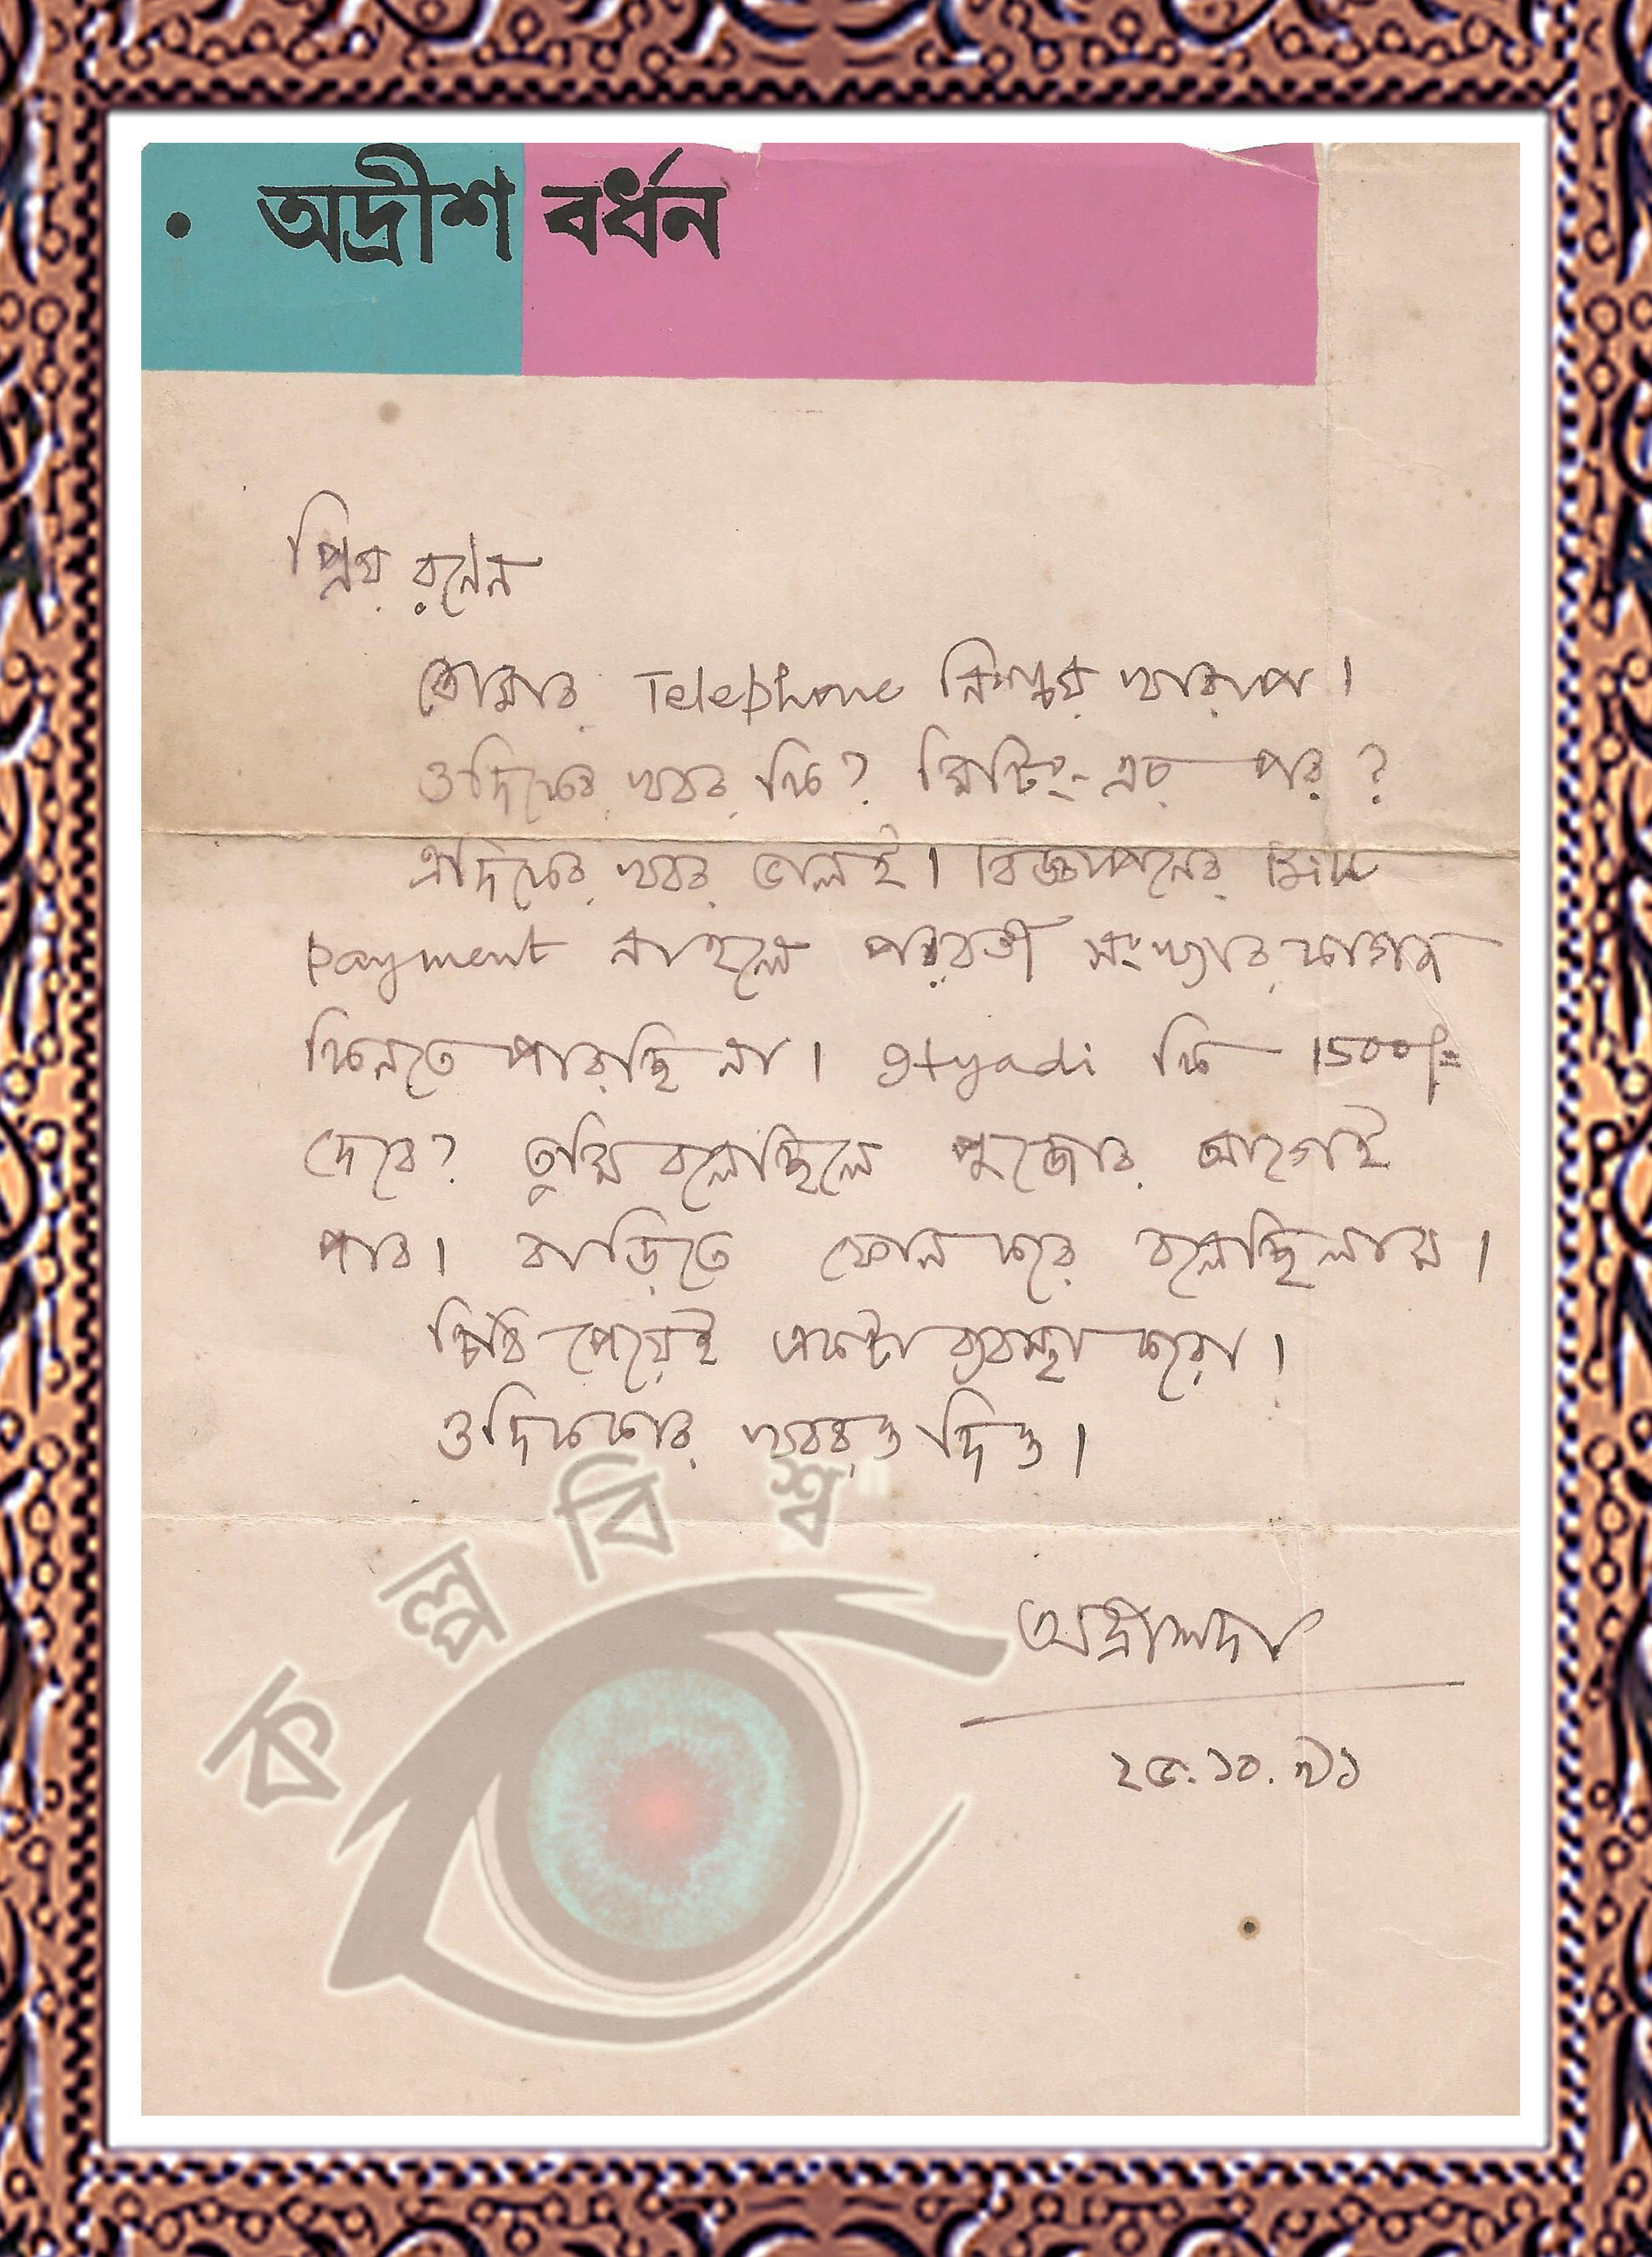 • অদ্রীশ বর্ধন
প্রিয় রনেন
তোমার Telephone নিশ্চয় খারাপ।
ওদিকের খবর কি? মিটিং-এর পর?
এদিকের খবর ভালই। বিজ্ঞাপনের Bill
payment না হলে পরবর্তী সংখ্যার কাগজ
কিনতে পারছি না। Ityadi কি 1500/=
দেবে? তুমি বলেছিলে পুজোর আগেই
পাব। বাড়িতে ফোন করে বলেছিলাম।
চিঠি পেয়েই একটা ব্যবস্থা করো।
ওদিককার খবরও দিও।
অদ্রীশদা
২৫.১০.৭১
কল্পবিশ্ব